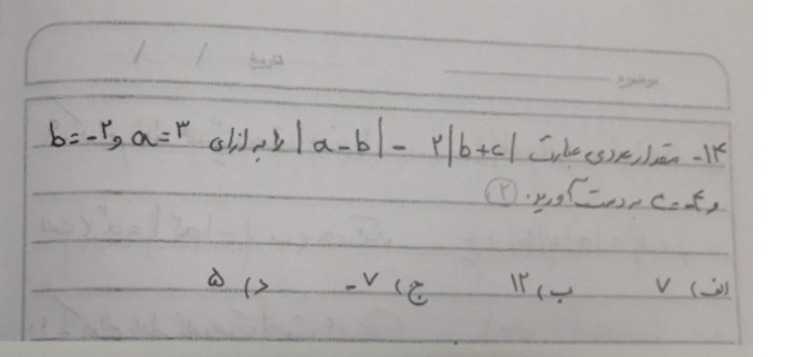 موضوع تاریخ / /
۱۴- مقدار عددی عبارت |a-b| - ۲|b+c| را به ازای a=۳ و b=-۲
و c=-۴ به دست آورید. (۲)
الف) ۷ ب) ۱۲ ج) -۷ د) ۵